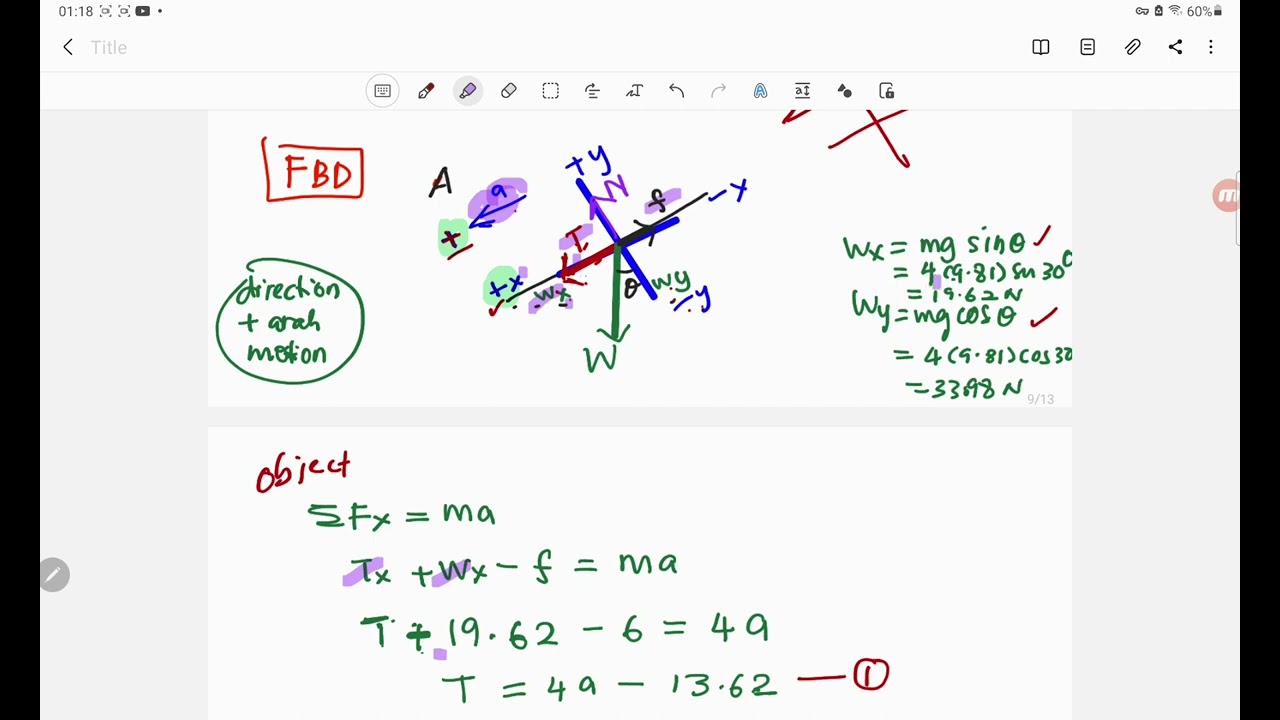 01:18
60%
Title
FBD
A
a
+
+y
N
f
-x
T
+x
Wx
θ
Wy
-y
W
direction
+ arah
motion
Wx = mg sinθ ✓
= 4(9.81) sin 30°
= 19.62 N
Wy = mg cosθ ✓
= 4(9.81) cos 30
= 33.98 N
9/13
object
ΣFx = ma
Tx + Wx - f = ma
T + 19.62 - 6 = 4a
T = 4a - 13.62 — ①